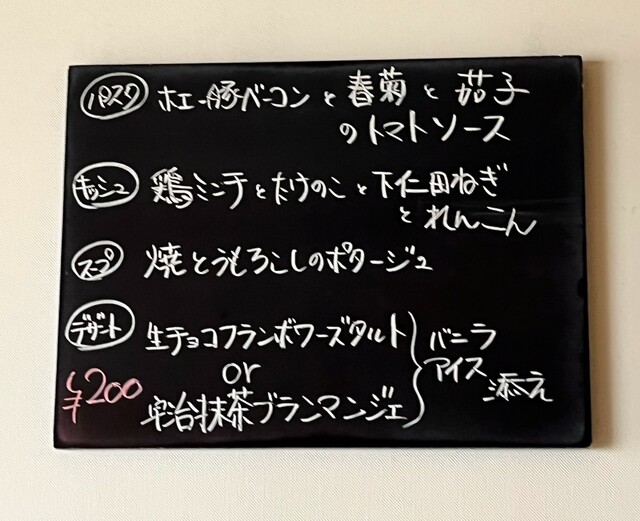 パスタ ホエー豚ベーコンと春菊と茄子
のトマトソース
キッシュ 鶏ミンチとたけのこと下仁田ねぎ
とれんこん
スープ 焼とうもろこしのポタージュ
デザート 生チョコフランボワーズタルト
or
宇治抹茶ブランマンジェ
バニラ
アイス
添え
¥200